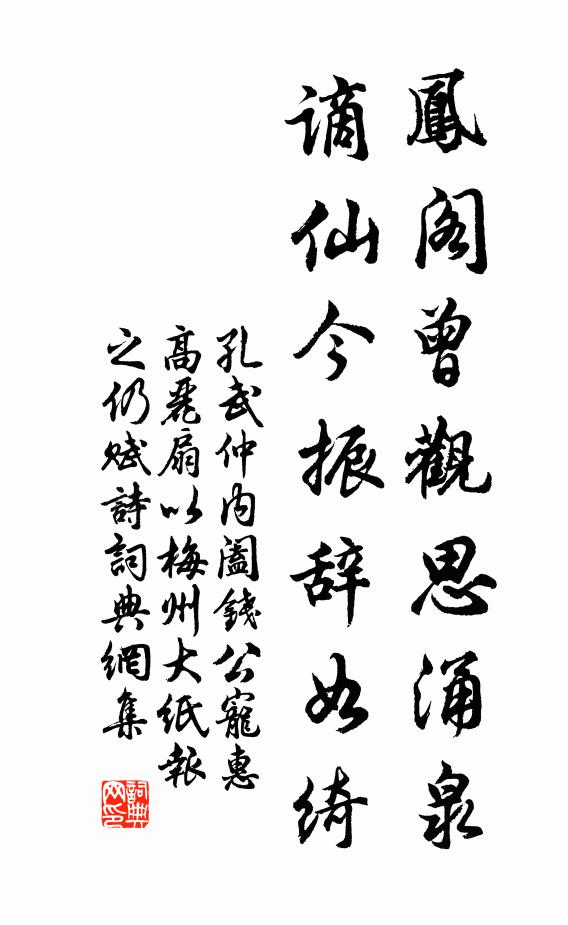 鳳阁曾觀思涌泉
谪仙今振辞如綺
孔武仲内阖錢公寵惠
高麗扇以梅州大紙報
之仍赋詩詞典網集
詞典网印